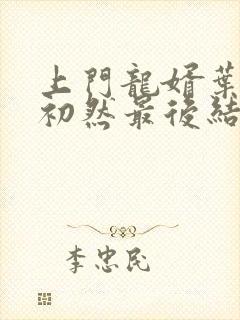 上門龍婿葉
初然最後結
李忠民